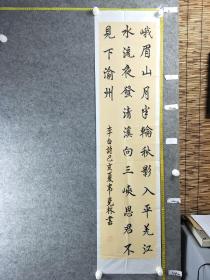 峨眉山月半輪秋影入平羌江
水流夜發清溪向三峽思君不
見下渝州
李白詩己亥夏韋克林書